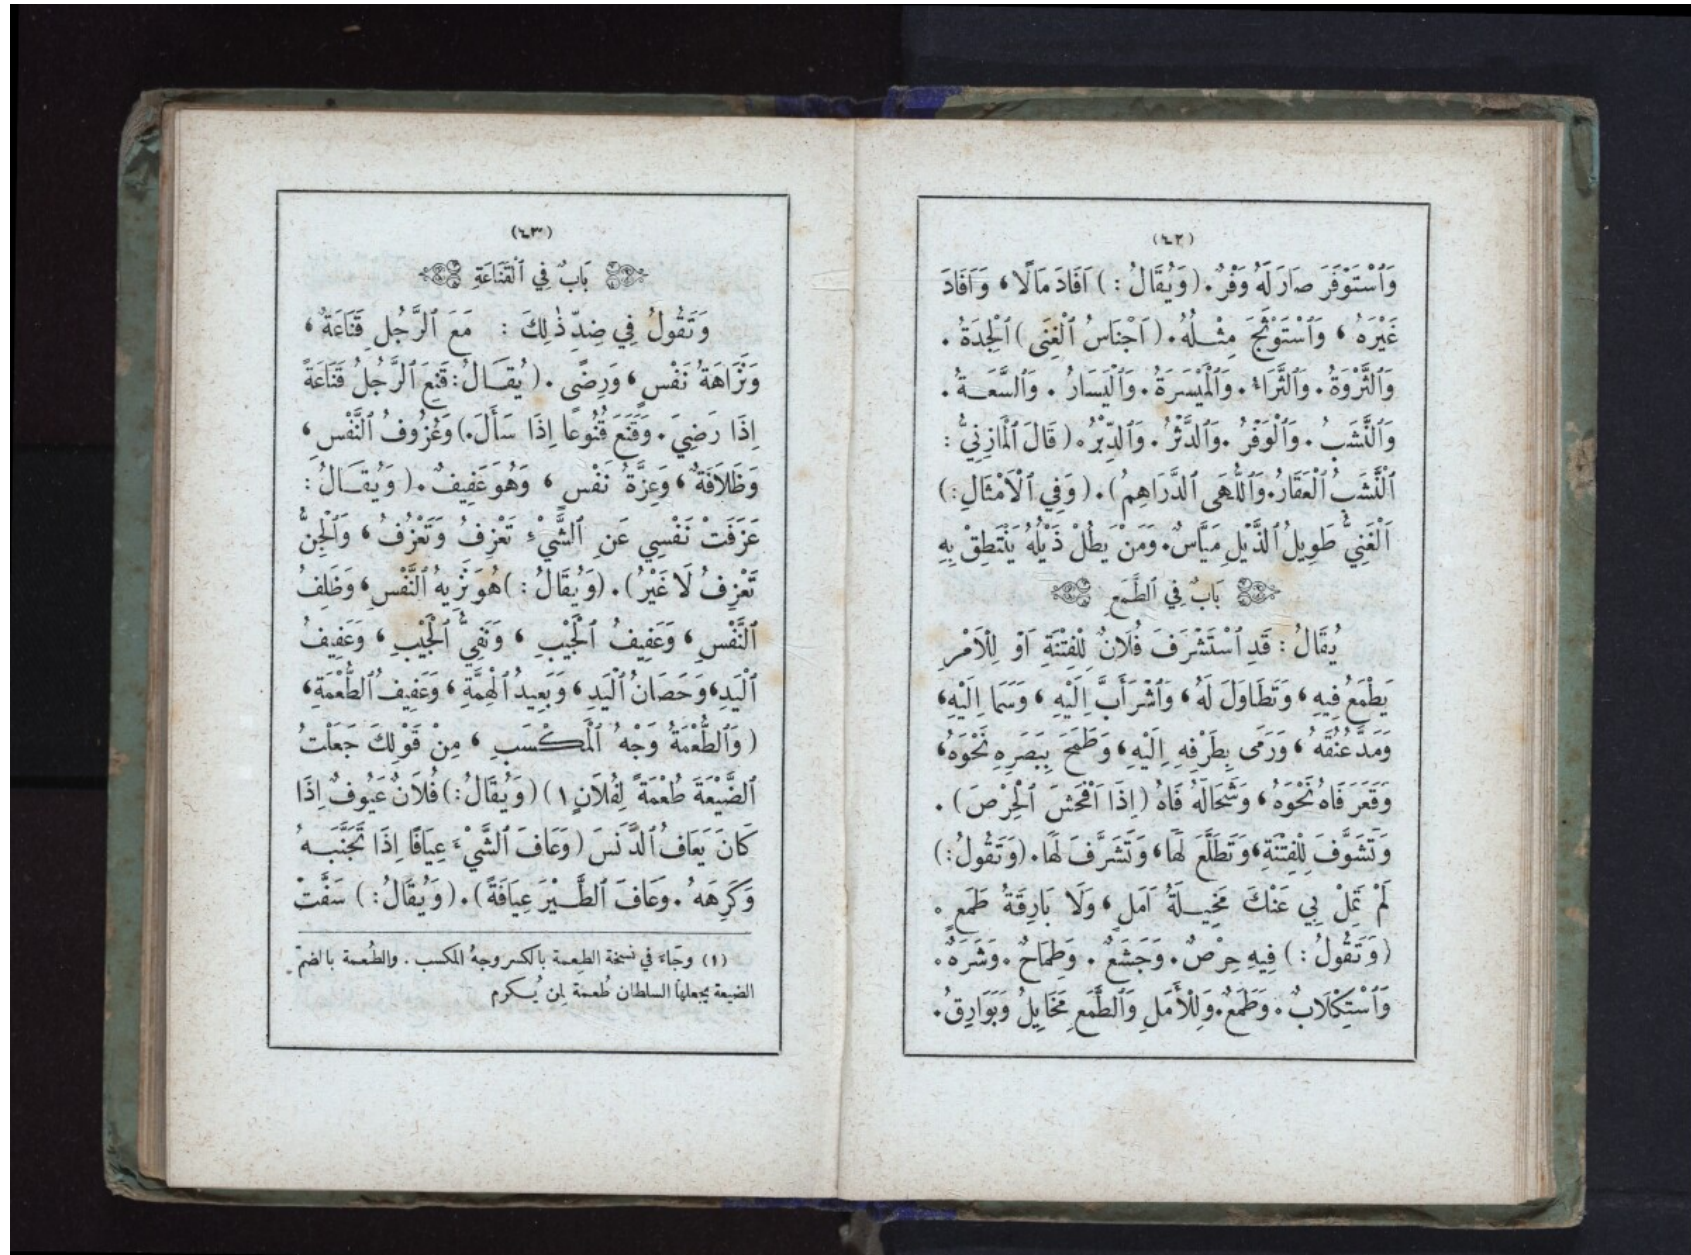 (٤٢)
وَٱسْتَوْفَرَ صَارَ لَهُ وَفْرٌ. (وَيُقَالُ:) اَفَادَ مَالًا، وَاَفَادَ
غَيْرَهُ، وَٱسْتَوْثَجَ مِثْلَهُ. (اَجْنَاسُ ٱلْغِنَى) ٱلْجِدَةُ.
وَٱلثَّرْوَةُ. وَٱلثَّرَاءُ. وَٱلْمَيْسَرَةُ. وَٱلْيَسَارُ. وَٱلسَّعَةُ.
وَٱلنَّشَبُ. وَٱلْوَفْرُ. وَٱلدَّثْرُ. وَٱلدِّبْرُ. (قَالَ ٱلْمَازِنِيُّ:
ٱلنَّشَبُ ٱلْعَقَارُ. وَٱللُّهَى ٱلدَّرَاهِمُ). (وَفِي ٱلْاَمْثَالِ:)
ٱلْغَنِيُّ طَوِيلُ ٱلذَّيْلِ مَيَّاسٌ. وَمَنْ يَطُلْ ذَيْلُهُ يَنْتَطِقْ بِهِ
بَابٌ فِي ٱلطَّمَعِ
يُقَالُ: قَدِ ٱسْتَشْرَفَ فُلَانٌ لِلْفِتْنَةِ اَوْ لِلْاَمْرِ
يَطْمَعُ فِيهِ، وَتَطَاوَلَ لَهُ، وَٱشْرَأَبَّ اِلَيْهِ، وَسَمَا اِلَيْهِ،
وَمَدَّ عُنُقَهُ، وَرَمَى بِطَرْفِهِ اِلَيْهِ، وَطَمَحَ بِبَصَرِهِ نَحْوَهُ،
وَفَغَرَ فَاهُ نَحْوَهُ، وَشَحَا لَهُ فَاهُ (اِذَا اَفْحَشَ ٱلْحِرْصَ).
وَتَشَوَّفَ لِلْفِتْنَةِ، وَتَطَلَّعَ لَهَا، وَتَشَرَّفَ لَهَا. (وَتَقُولُ:)
لَمْ تَمِلْ بِي عَنْكَ مَخِيلَةُ اَمَلٍ، وَلَا بَارِقَةُ طَمَعٍ.
(وَتَقُولُ:) فِيهِ حِرْصٌ. وَجَشَعٌ. وَطِمَاحٌ. وَشَرَهٌ.
وَٱسْتِكْلَابٌ. وَطَمَعٌ. وَلِلْأَمَلِ وَٱلطَّمَعِ مَخَايِلُ وَبَوَارِقُ.
(٤٣)
بَابٌ فِي ٱلْقَنَاعَةِ
وَتَقُولُ فِي ضِدِّ ذٰلِكَ: مَعَ ٱلرَّجُلِ قَنَاعَةٌ،
وَنَزَاهَةُ نَفْسٍ، وَرِضًى. (يُقَالُ: قَنِعَ ٱلرَّجُلُ قَنَاعَةً
اِذَا رَضِيَ. وَقَنَعَ قُنُوعًا اِذَا سَأَلَ.) وَعُزُوفُ ٱلنَّفْسِ،
وَظَلَافَةٌ، وَعِزَّةُ نَفْسٍ، وَهُوَ عَفِيفٌ. (وَيُقَالُ:
عَزَفَتْ نَفْسِي عَنِ ٱلشَّيْءِ تَعْزِفُ وَتَعْزُفُ، وَٱلْجِنُّ
تَعْزِفُ لَا غَيْرُ). (وَيُقَالُ:) هُوَ نَزِيهُ ٱلنَّفْسِ، وَظَلِفُ
ٱلنَّفْسِ، وَعَفِيفُ ٱلْجَيْبِ، وَنَقِيُّ ٱلْجَيْبِ، وَعَفِيفُ
ٱلْيَدِ، وَحَصَانُ ٱلْيَدِ، وَبَعِيدُ ٱلْهِمَّةِ، وَعَفِيفُ ٱلطُّعْمَةِ،
(وَٱلطُّعْمَةُ وَجْهُ ٱلْمَكْسَبِ، مِنْ قَوْلِكَ جَعَلْتُ
ٱلضَّيْعَةَ طُعْمَةً لِفُلَانٍ ١) (وَيُقَالُ:) فُلَانٌ عَيُوفٌ اِذَا
كَانَ يَعَافُ ٱلدَّنَسَ (وَعَافَ ٱلشَّيْءَ عِيَافًا اِذَا تَجَنَّبَهُ
وَكَرِهَهُ. وَعَافَ ٱلطَّيْرَ عِيَافَةً). (وَيُقَالُ:) سَفَّتْ
(١) وجاءَ في نسخة الطِعمة بالكسر وجهُ المكسب. والطُعمة بالضمّ
الضيعة يجعلها السلطان طُعمَة لمن يُكرم